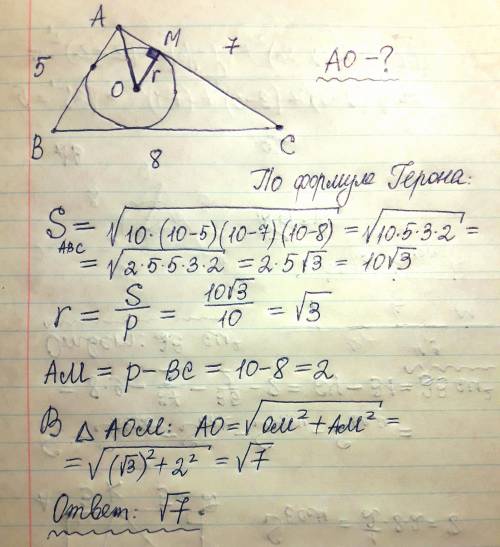 A
M
7
AO-?
5
O
r
B
C
8
По формула Герона:
S ABC = √10·(10-5)(10-7)(10-8) = √10·5·3·2 =
= √2·5·5·3·2 = 2·5√3 = 10√3
r = S/p = 10√3/10 = √3
AM = p - BC = 10-8 = 2
В △ AOM: AO = √OM² + AM² =
= √(√3)² + 2² = √7
Ответ: √7.